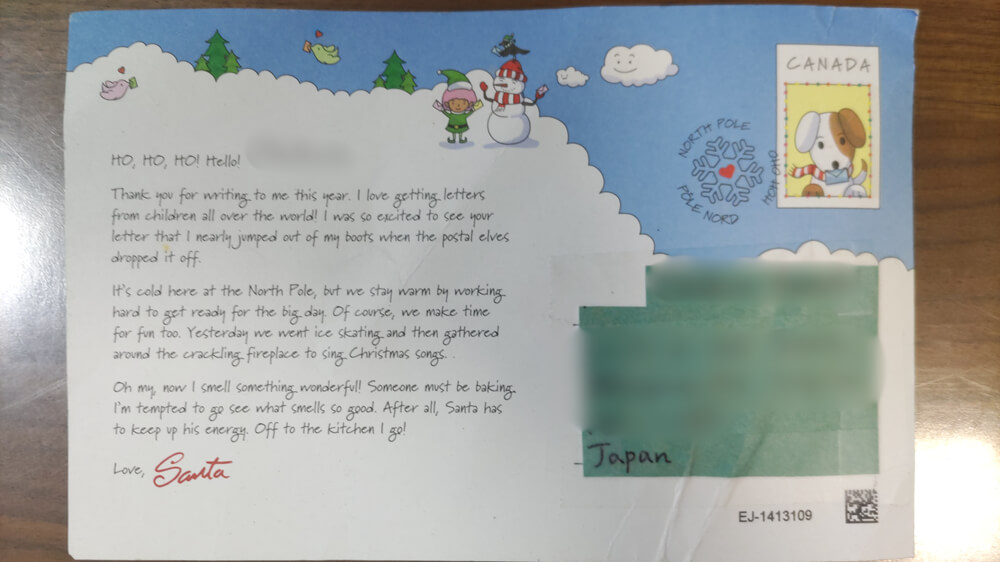 CANADA
NORTH POLE
PÔLE NORD
HOH OHO
HO, HO, HO! Hello!
Thank you for writing to me this year. I love getting letters
from children all over the world! I was so excited to see your
letter that I nearly jumped out of my boots when the postal elves
dropped it off.
It's cold here at the North Pole, but we stay warm by working
hard to get ready for the big day. Of course, we make time
for fun too. Yesterday we went ice skating and then gathered
around the crackling fireplace to sing Christmas songs.
Oh my, now I smell something wonderful! Someone must be baking.
I'm tempted to go see what smells so good. After all, Santa has
to keep up his energy. Off to the kitchen I go!
Love, Santa
Japan
EJ-1413109